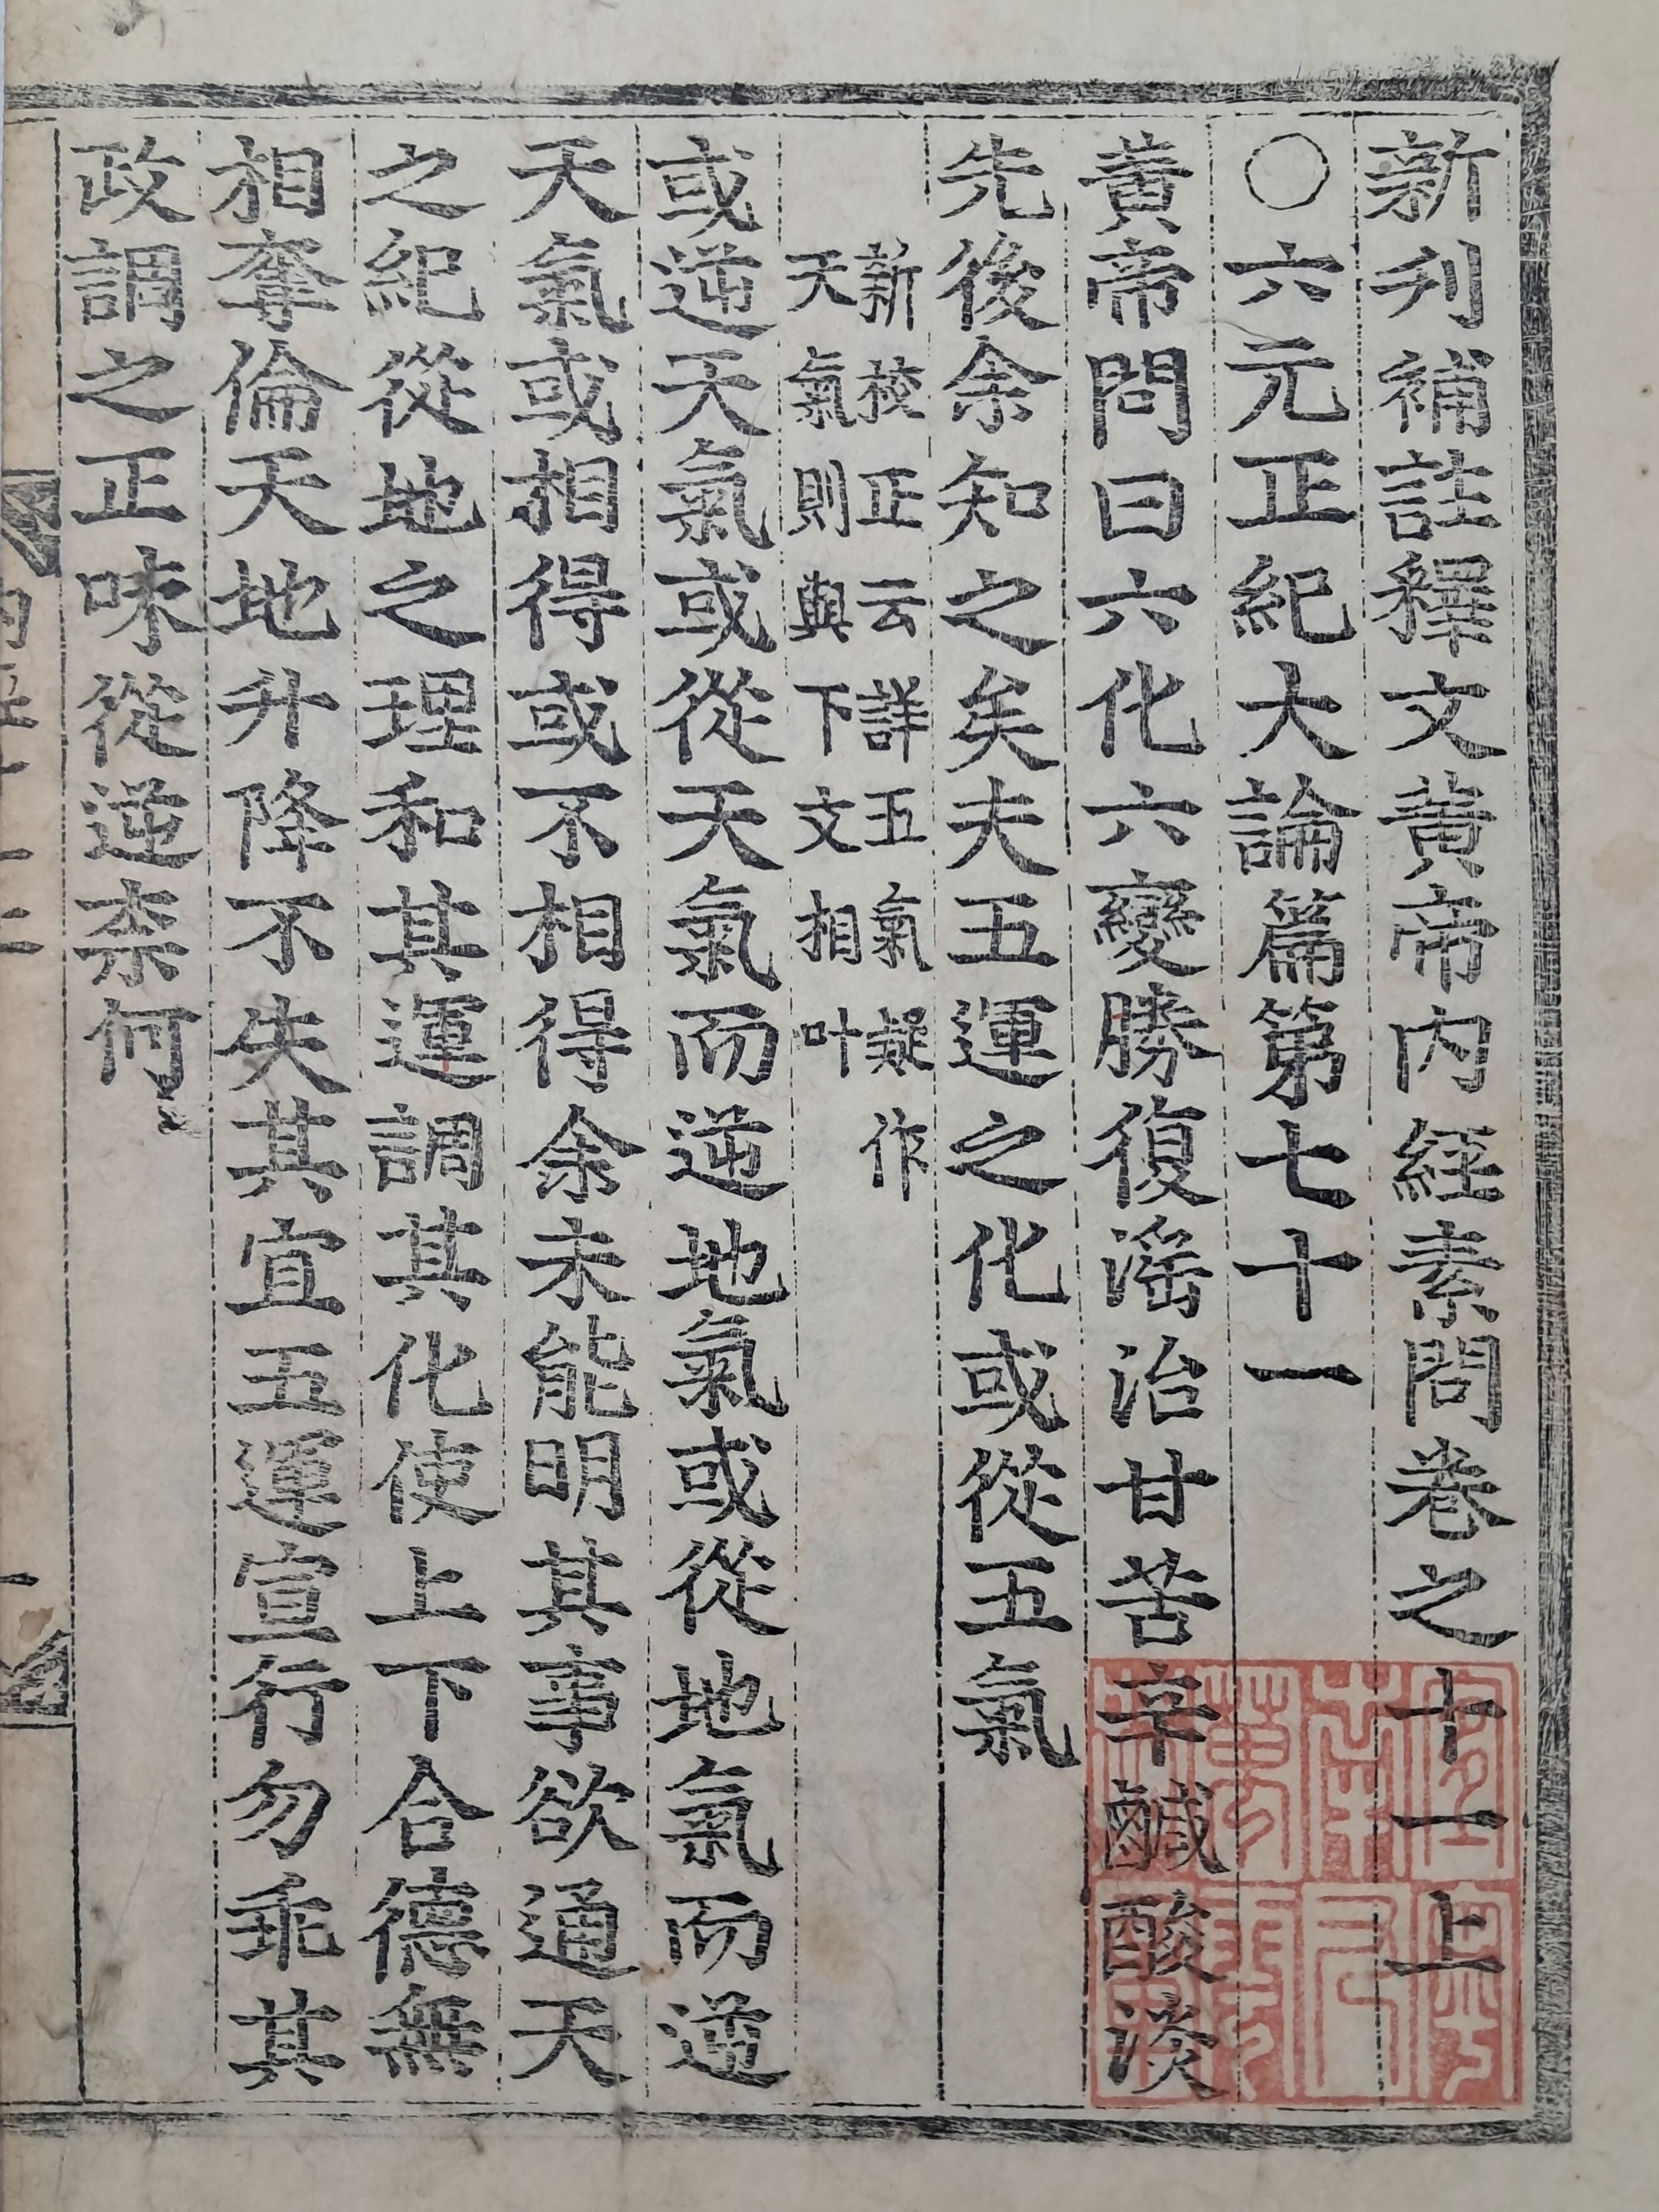 新刋補註釋文黃帝内経素問卷之十一上
○六元正紀大論篇第七十一
黃帝問曰六化六變勝復滛治甘苦辛鹹酸淡
先後余知之矣夫五運之化或從五氣
新校正云詳五氣疑作
天氣則與下文相叶
或逆天氣或從天氣而逆地氣或從地氣而逆
天氣或相得或不相得余未能明其事欲通天
之紀從地之理和其運調其化使上下合德無
相奪倫天地升降不失其宜五運宣行勿乖其
政調之正味從逆柰何